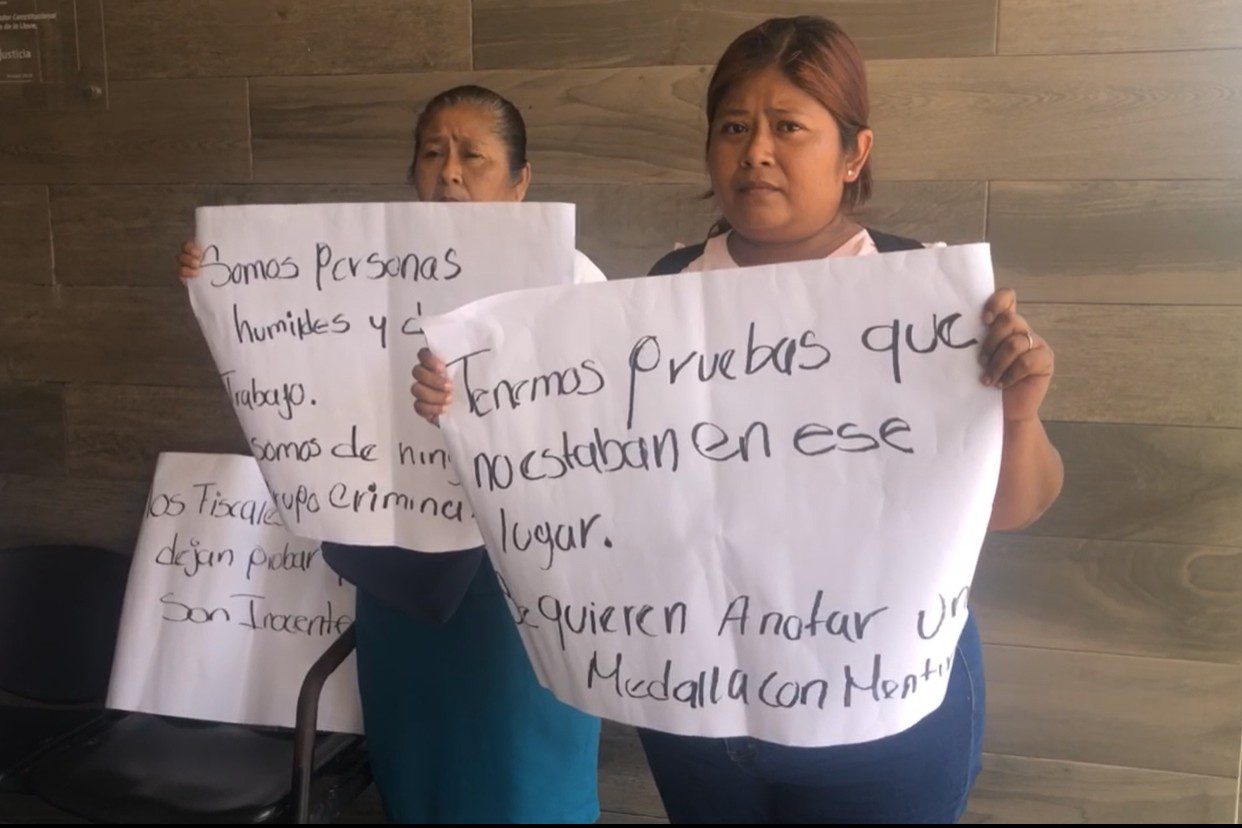 de la Llave,
Justicia
Somos Personas
humildes y
Trabajo.
somos de
Criminal
los Fiscales
dejan probar
Son Inocente
Tenemos pruebas que
no estaban en ese
lugar.
Se quieren Anotar Un
Medalla con